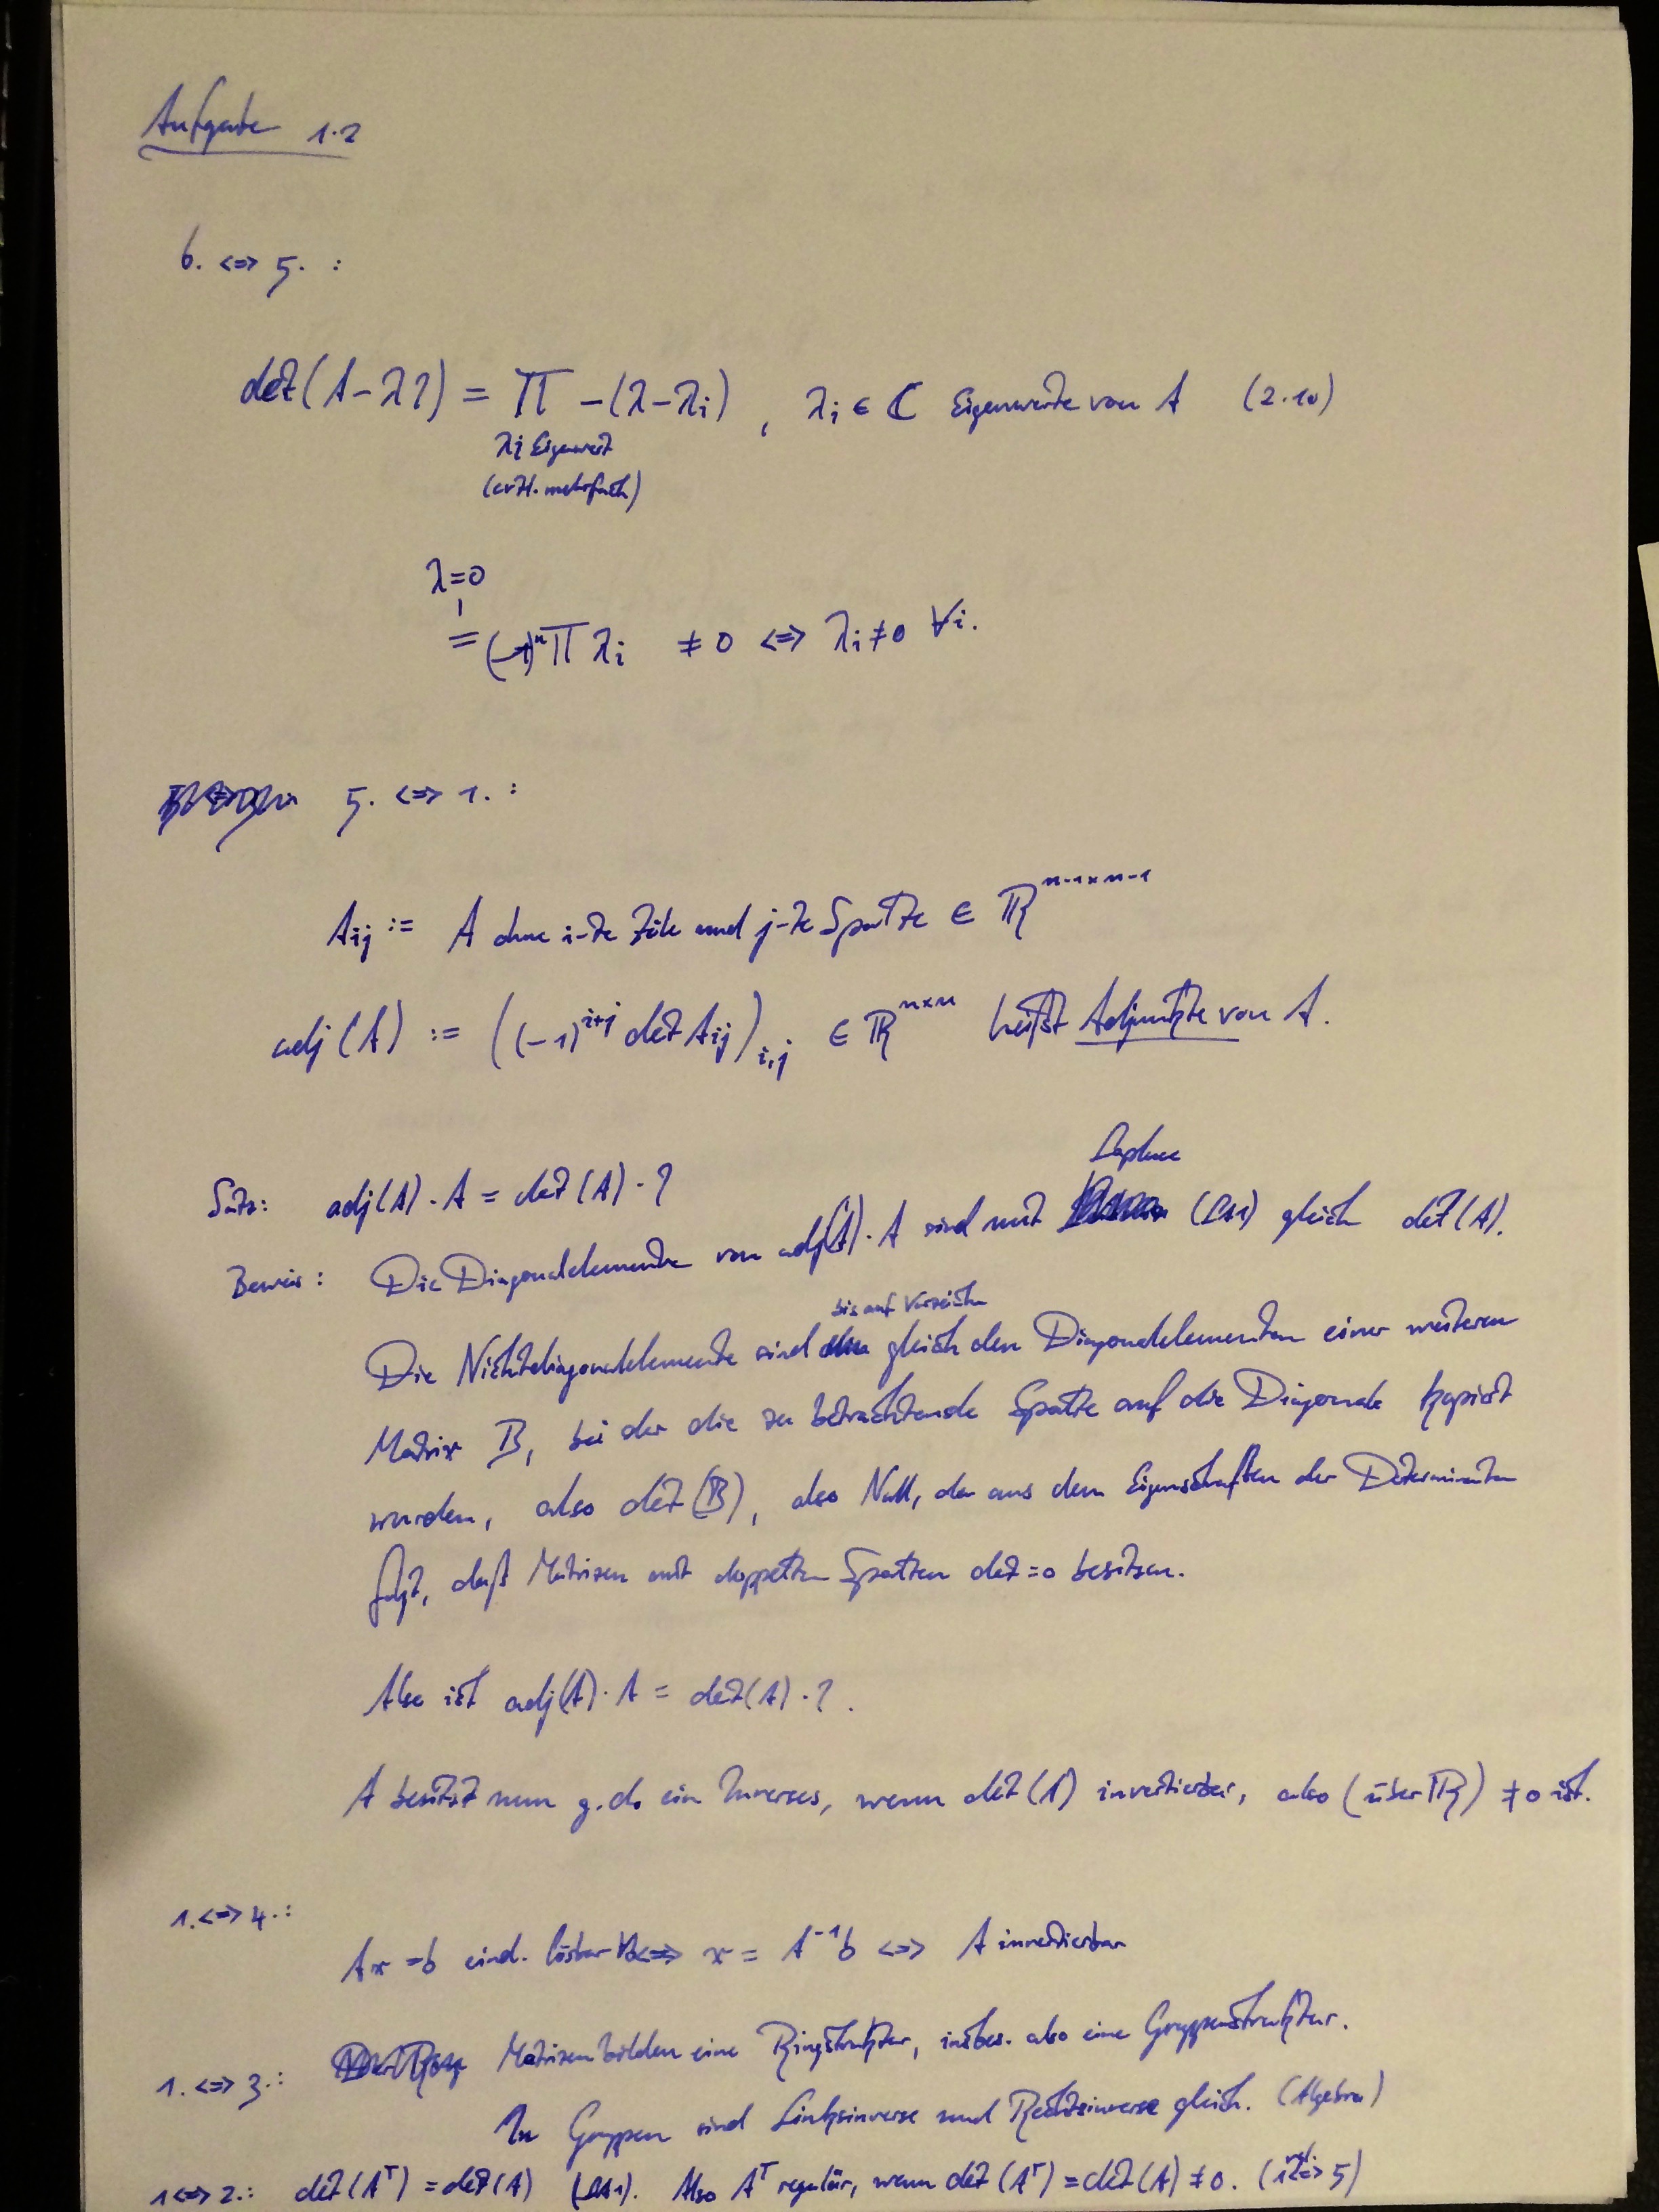 Aufgabe 1.2
6. <=> 5. :
det(A-λI) = ∏ -(λ-λi) , λi ∈ ℂ Eigenwerte von A (2.10)
λi Eigenwert
(evtl. mehrfach)
λ=0
= (-1)^n ∏ λi ≠ 0 <=> λi≠0 ∀i.
5. <=> 1. :
Aij := A ohne i-te Zeile und j-te Spalte ∈ ℝ^n-1×n-1
adj(A) := ((-1)^i+j det Aij)i,j ∈ ℝ^n×n heißt Adjunkte von A.
Satz: adj(A) · A = det(A) · I
Laplace
Beweis: Die Diagonalelemente von adj(A) · A sind mit (LA1) gleich det(A).
bis auf Vorzeichen
Die Nichtdiagonalelemente sind gleich den Diagonalelementen einer weiteren
Matrix B, bei der die zu betrachtende Spalte auf die Diagonale kopiert
wurden, also det(B), also Null, da aus den Eigenschaften der Determinante
folgt, daß Matrizen mit doppelten Spalten det=0 besitzen.
Also ist adj(A) · A = det(A) · I .
A besitzt nun g.d. ein Inverses, wenn det(A) invertierbar, also (über ℝ) ≠0 ist.
1. <=> 4. :
Ax =b eind. lösbar ∀b <=> x = A^-1 b <=> A invertierbar
1. <=> 3. : Matrizen bilden eine Ringstruktur, insbes. also eine Gruppenstruktur.
In Gruppen sind Linksinverse und Rechtsinverse gleich. (Algebra)
1 <=> 2. : det(A^T) = det(A) (LA1). Also A^T regulär, wenn det(A^T) = det(A) ≠ 0. (1 <=> 5)